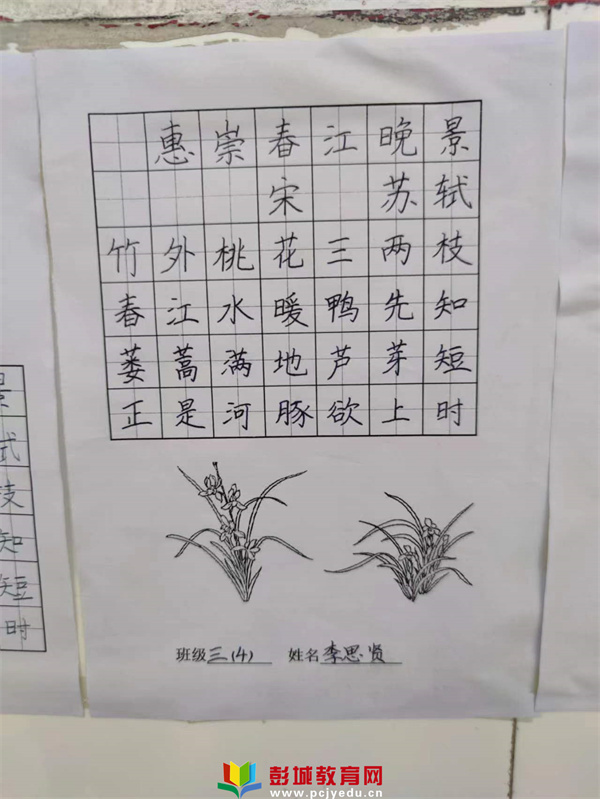 惠崇春江晚景
宋 苏轼
竹外桃花三两枝
春江水暖鸭先知
蒌蒿满地芦芽短
正是河豚欲上时
班级三(4) 姓名李思贤
景
轼
枝
知
短
时
彭城教育网
www.pcjyedu.cn